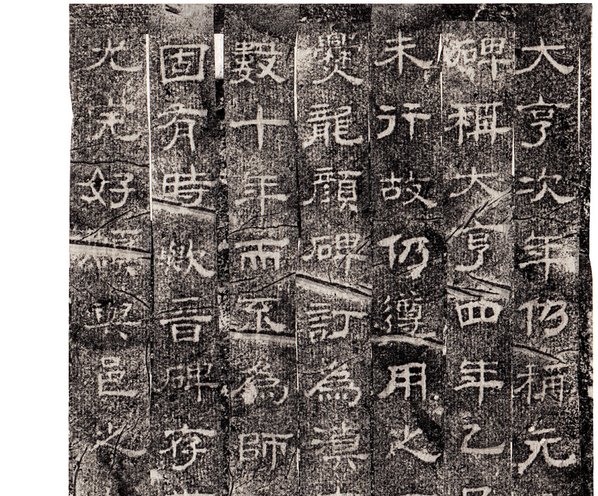 大亨次年仍稱元
碑稱大亨四年乙
未行故仍遵用之
爨龍顏碑訂為滇
數十年而不為師
固有時歟晉碑存
尤完好願與邑之